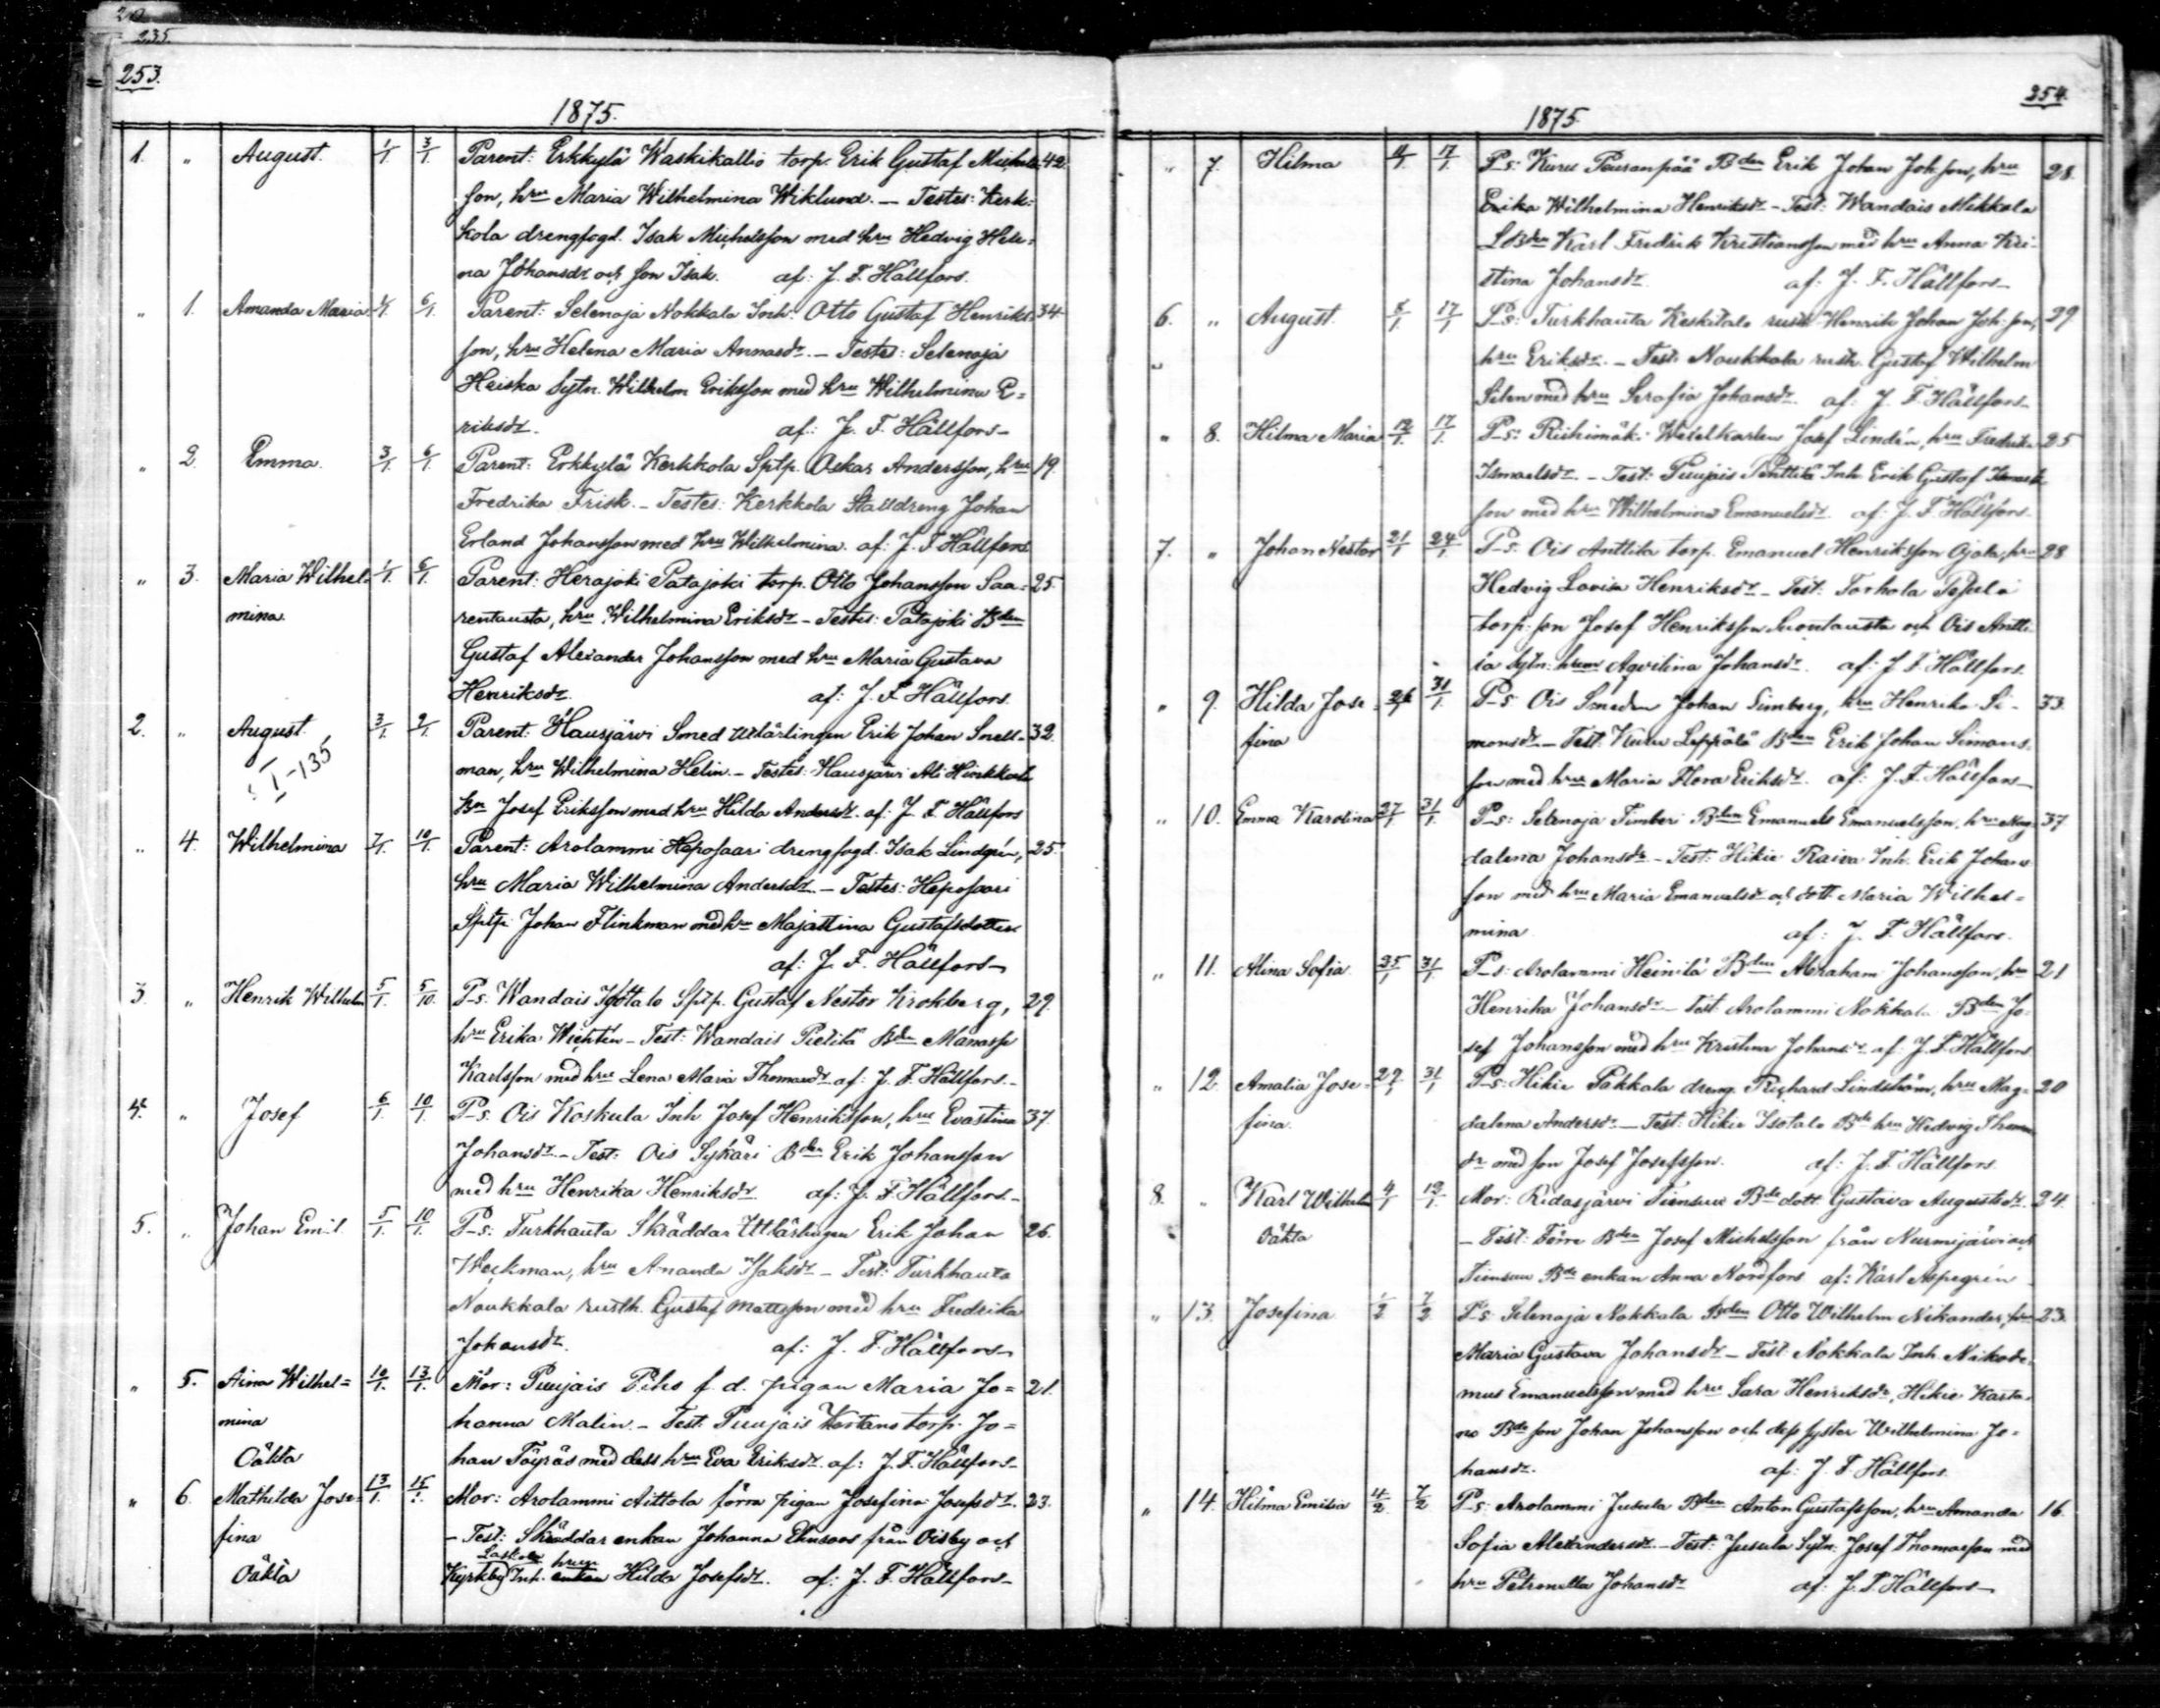 20
235
253.
1875.
1. " August. 1/1 3/1. Parent: Erkkylä Waskikallio torp. Erik Gustaf Michels- 42.
son, hru Maria Wilhelmina Wiklund. — Testes: Kerk-
kola drengfogd. Isak Michelsson med hru Hedvig Hele-
na Johansdr och son Isak. af: J. F. Hällfors.
" 1. Amanda Maria 1/1. 6/1. Parent: Selenoja Nokkala Inh. Otto Gustaf Henriks- 34
son, hru Helena Maria Annasdr. — Testes: Selenoja
Heiska Sytn. Wilhelm Eriksson med hru Wilhelmina E=
riksdr. af: J. F. Hällfors—
" 2. Emma. 3/1. 6/1. Parent: Erkkylä Kerkkola Sptp. Oskar Andersson, hru 19.
Fredrika Frisk. — Testes: Kerkkola Stalldreng Johan
Erland Johansson med hru Wilhelmina. af: J. F. Hällfors
" 3. Maria Wilhel- 1/1. 6/1. Parent: Herajoki Patajoki torp. Otto Johansson Saa- 25.
mina. rentausta, hru Wilhelmina Eriksdr — Testes: Patajoki Bden
Gustaf Alexander Johansson med hru Maria Gustava
Henriksdr. af: J. F. Hällfors.
2. " August. 3/1. 9/1. Parent: Hausjärvi Smed utlärlingen Erik Johan Snell- 32.
I-135 man, hru Wilhelmina Helin. — Testes: Hausjärvi Ali
Bn Josef Eriksson med hru Hilda Andersdr. af: J. F. Hällfors
" 4. Wilhelmina 7/1. 10/1. Parent: Arolammi Heposaari drengfogd. Isak Lindgrén, 25.
hru Maria Wilhelmina Andersdr. — Testes: Heposaari
Sptp. Johan Flinkman med hru Majastina Gustafsdotter
af: J. F. Hällfors—
3. " Henrik Wilhelm 5/1. 5/10. P-s. Wandais Isotalo Sptp. Gustaf Nestor Krohberg, 29.
hru Erika Wichtin — Test: Wandais Pietilä Bden Manasse
Karlsson med hru Lena Maria Thomasdr af: J. F. Hällfors.—
4. " Josef 6/1. 10/1. P-s. Ois Koskula Inh Josef Henriksson, hru Evastina 37.
Johansdr. — Test: Ois Sykäri Bden Erik Johansson
med hru Henrika Henriksdr. af: J. F. Hällfors—
5. " Johan Emil 5/1. 10/1. P-s: Turkhauta Skräddar Utlärlingen Erik Johan 26.
Weckman, hru Amanda Isaksdr — Test: Turkhauta
Noukkala rusth. Gustaf Mattsson med hru Fredrika
Johansdr. af: J. F. Hällfors—
" 5. Aina Wilhel= 10/1. 13/1. Mor: Puujais Piho f. d. pigan Maria Jo= 21.
mina hanna Malin. — Test: Puujais torp. Jo=
Oäkta han Töyräs med dess hru Eva Eriksdr. af: J. F. Hällfors—
" 6. Mathilda Jose- 13/1. 15/1. Mor: Arolammi Aittola förra pigan Josefina Josefsdr. 23.
fina — Test: Skräddar enkan Johanna från Oisby och
Oäkta Kyrkby Laskola Inh. enkan hrun Hilda Josefsdr. af: J. F. Hällfors—
254.
1875
" 7. Hilma 11/1. 17/1. P-s: Kuru Pausanpää Bden Erik Johan Johsson, hru 28.
Erika Wilhelmina Henriksdr — Test: Wandais Mikkola
LBden Karl Fredrik Kristiansson med hru Anna Kri-
stina Johansdr. af: J. F. Hällfors—
6. " August. 8/1 17/1 P-s: Turkhauta Keskitalo rusth Henrik Johan Joh. son, 39
hru Eriksdr. — Test: Noukkala rusth. Gustaf Wilhelm
Selen med hru Serafia Johansdr. af: J. F. Hällfors—
" 8. Hilma Maria 12/1. 17/1. P-s: Riihimäki Wäxelkarlen Josef Lindén, hru Fredrika 25
Ismaelsdr. — Test: Puujais Penttilä Inh Erik Gustaf
son med hru Wilhelmina Emanuelsdr. af: J. F. Hällfors—
7. " Johan Nestor 21/1 24/1. P-s. Ois Anttila torp. Emanuel Henriksson Ojala, hru 28
Hedvig Lovisa Henriksdr — Test: Torhola
torp. son Josef Henriksson Suontausta och Ois Antti-
la Sytn. hrun Aqvilina Johansdr. af: J. F. Hällfors.
" 9. Hilda Jose- 26/1 31/1. P-s Ois Smeden Johan Simberg, hru Henrika Si- 33.
fina monsdr — Test. Kuru Leppälä Bden Erik Johan Simons-
son med hru Maria Flora Eriksdr. af: J. F. Hällfors—
" 10. Emma Karolina 27/1 31/1. P-s: Selenoja Timberi Bden Emanuel Emanuelsson, hru Mag- 37
dalena Johansdr — Test: Hikie Raiva Inh. Erik Johans-
son med hru Maria Emanuelsdr och dott. Maria Wilhel=
mina. af: J. F. Hällfors.
" 11. Alina Sofia. 25/1 31/1. P-s: Arolammi Heinilä Bden Abraham Johansson, hru 21
Henrika Johansdr — Test: Arolammi Nokkala Bden Jo-
sef Johansson med hru Kristina Johansdr af: J. F. Hällfors
" 12. Amalia Jose- 29/1 31/1 P-s: Hikie Pakkala dreng Richard Lindström, hru Mag- 20
fina. dalena Andersdr — Test: Hikie Isotalo Bde hru Hedvig Thomas
dr med son Josef Josefsson. af: J. F. Hällfors.
8. " Karl Wilhelm 4/1 12/1. Mor: Ridasjärvi Tiensuu Bde dott Gustava Augustsdr. 24.
Oäkta — Test: Förre Bden Josef Michelsson från Nurmijärvi och
Tiensuu Bde enkan Anna Nordfors af: Karl Aspegrén
" 13. Josefina 1/2 7/2 P-s: Selenoja Nokkala Bden Otto Wilhelm Nikander, hru 23.
Maria Gustava Johansdr — Test Nokkala Inh. Nikode-
mus Emanuelsson med hru Sara Henriksdr, Hikie Karta-
no Bde son Johan Johansson och dess syster Wilhelmina Jo-
hansdr. af: J. F. Hällfors.
" 14. Hilma Emilia 4/2. 7/2 P-s: Arolammi Jusula Bden Anton Gustafsson, hru Amanda 16.
Sofia Alexandersdr. — Test: Jusula Sytn. Josef Thomasson med
hru Petronella Johansdr af: J. F. Hällfors—